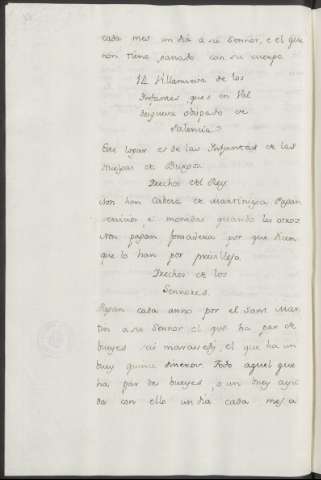 cada mes un dia a su Sennor, e el que
non tiene, ganado con su cuerpo
12 Villanueva de los
Infantes, que es en Val
desguera obispado de
Palencia.
Este logar es de las Infantas de las
Huelgas de Burgos
Derechos del Rey
Non han Cabeza de martiniega. Pagan
servicios e monedas quando los otros
Non pagan fonsadera por que dicen
que lo han por previllejo.
Derechos de los
Sennores.
Pagan cada anno por el Sant Mar
tin a su Sennor el que ha par de
bueyes maravedis, el que ha un
buey quince dineros. Todo aquel que
ha par de bueyes, o un buey ayu
da con ello un dia cada mes a